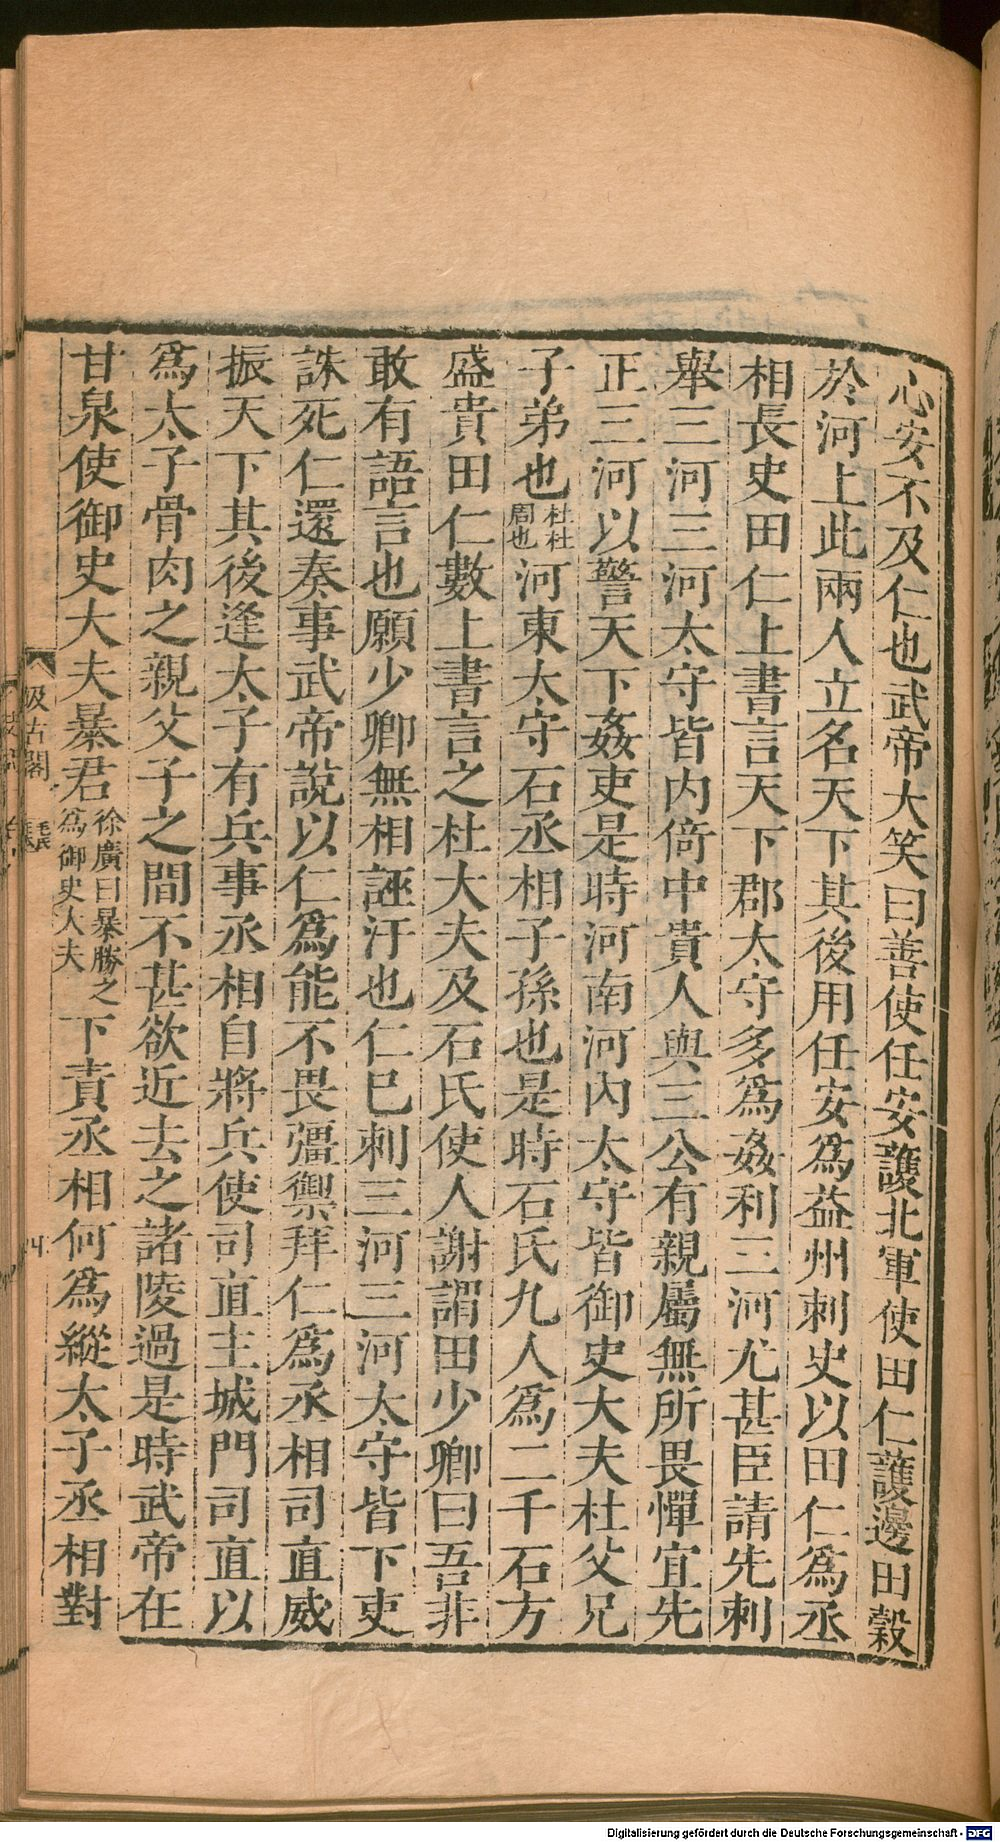 心安不及仁也武帝大笑曰善使任安護北軍使田仁護邊田穀
於河上此兩人立名天下其後用任安爲益州刺史以田仁爲丞
相長史田仁上書言天下郡太守多爲姦利三河尤甚臣請先刺
舉三河三河太守皆内倚中貴人與三公有親屬無所畏憚宜先
正三河以警天下姦吏是時河南河内太守皆御史大夫杜父兄
子弟也杜杜周也河東太守石丞相子孫也是時石氏九人爲二千石方
盛貴田仁數上書言之杜大夫及石氏使人謝謂田少卿曰吾非
敢有語言也願少卿無相誣汙也仁巳刺三河三河太守皆下吏
誅死仁還奏事武帝說以仁爲能不畏彊禦拜仁爲丞相司直威
振天下其後逢太子有兵事丞相自將兵使司直主城門司直以
爲太子骨肉之親父子之間不甚欲近去之諸陵過是時武帝在
甘泉使御史大夫暴君徐廣曰暴勝之爲御史大夫下責丞相何爲縱太子丞相對
汲古閣
毛氏
Digitalisierung gefördert durch die Deutsche Forschungsgemeinschaft - DFG